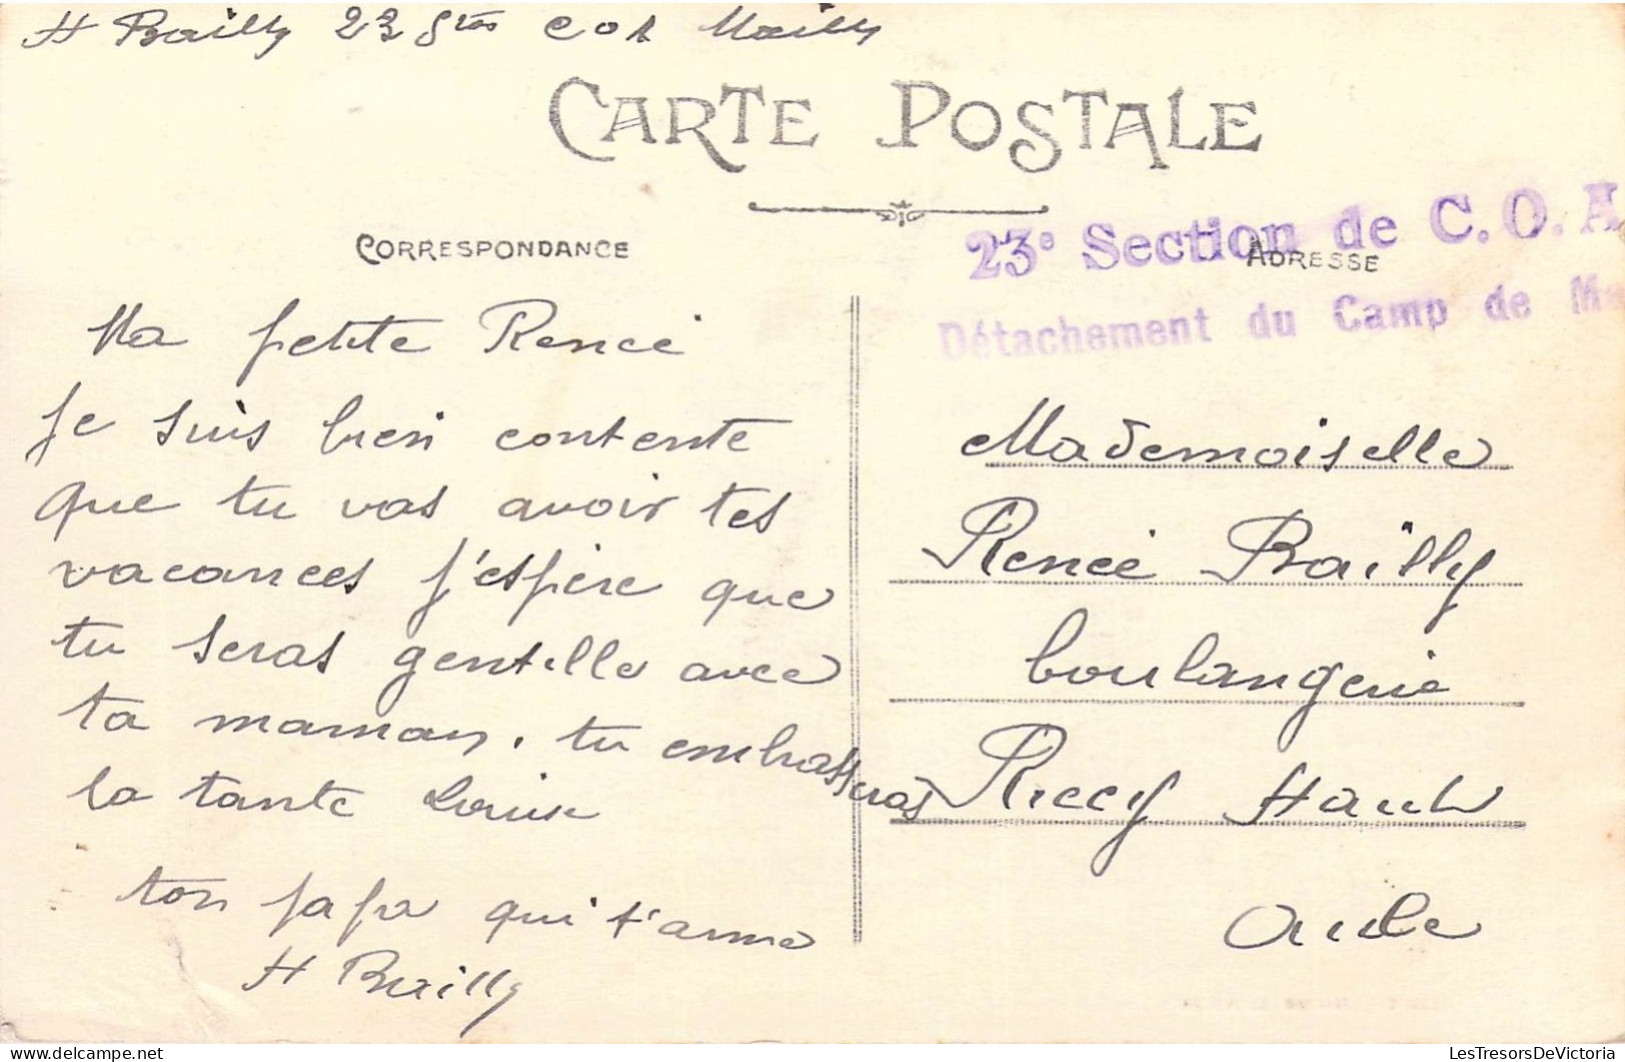 H Bailly 23 Son COA Mailly
CARTE POSTALE
CORRESPONDANCE
ADRESSE
23e Section de C. O. A
Détachement du Camp de Ma
Ma petite Renée
Je suis bien contente
que tu vas avoir tes
vacances j'espère que
tu seras gentille avec
ta maman. tu embrasseras
la tante Louise
ton papa qui t'aime
H Bailly
Mademoiselle
Renée Bailly
boulangerie
Ricey Haut
Aube
LesTresorsDeVictoria